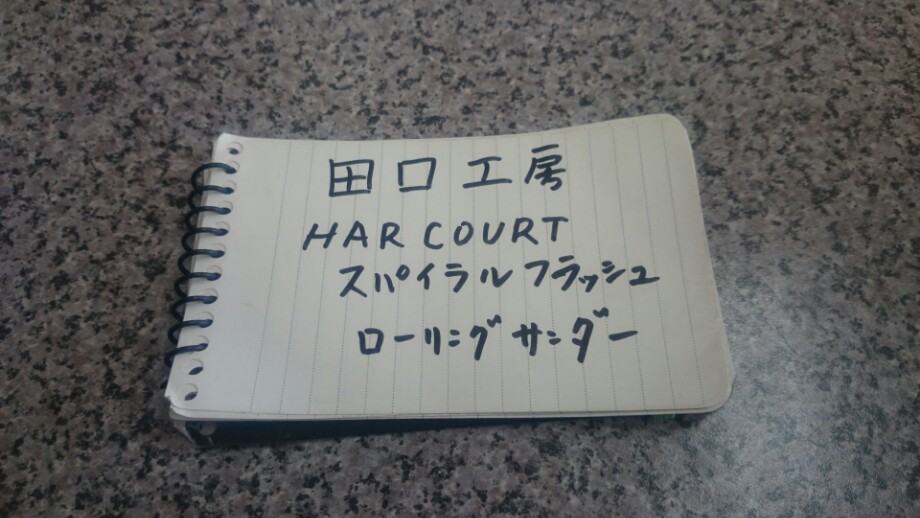 田口工房
HARCOURT
スパイラルフラッシュ
ローリングサンダー